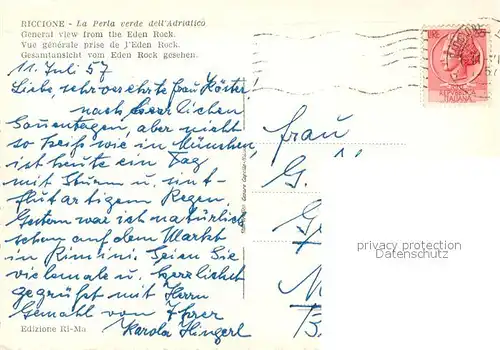 RICCIONE - La Perla verde dell'Adriatico
General view from the Eden Rock.
Vue générale prise de l'Eden Rock.
Gesamtansicht vom Eden Rock gesehen.
11. Juli 57
Liebe, sehr verehrte Frau Köster!
nach herrlichen
Sonnentagen, aber nicht
so heiß wie in München,
ist heute ein Tag
mit Sturm u. sint-
flutartigem Regen,
Gestern war ich natürlich
schon auf dem Markt
in Rimini. Seien Sie
vielemale u. herzlichst
gegrüßt mit Herrn
Gemahl von Ihrer
Karola Hingerl
Edizione Ri-Ma
LIRE 35
REPUBBLICA
ITALIANA
Frau
G.
G
privacy protection
Sammler.de